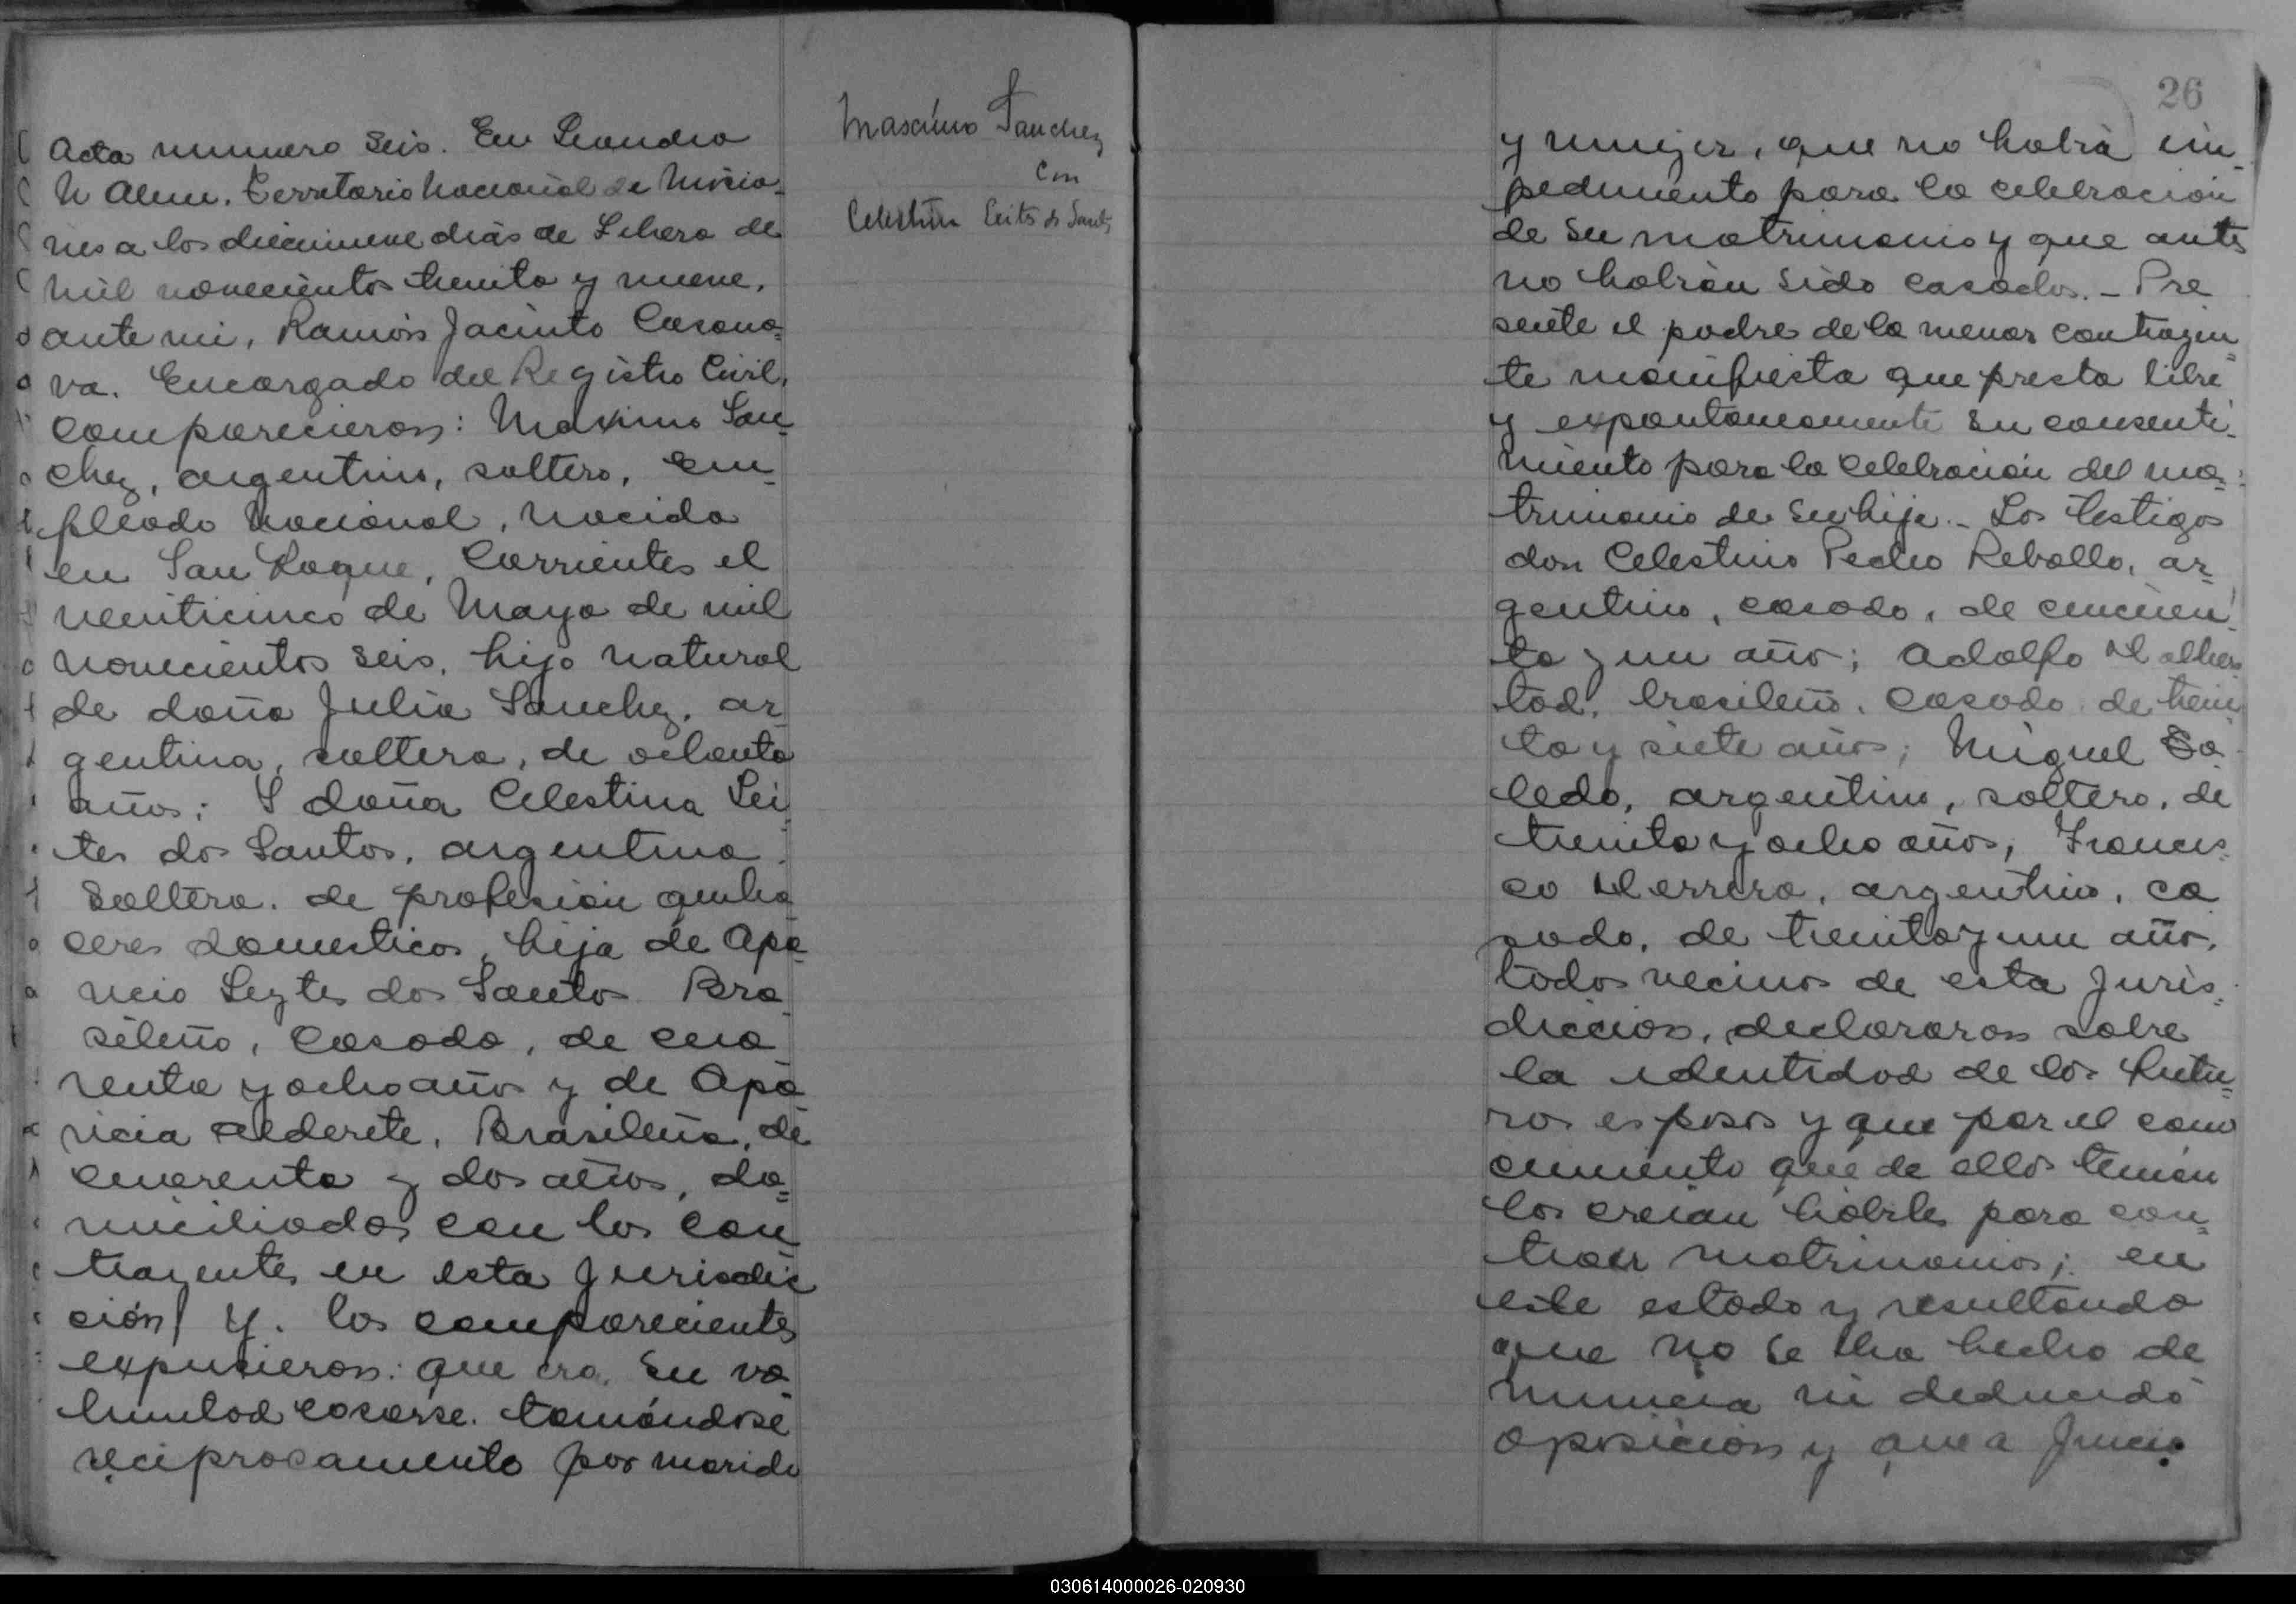 Acta numero Seis. En Leandro
N Alem. Territorio Nacional de Misio=
nes a los diecinueve dias de Febrero de
mil novecientos treinta y nueve,
ante mi, Ramón Jacinto Casano=
va. Encargado del Registro Civil,
comparecieron: Maximo San=
chez, argentino, soltero, em=
pleado Nacional, nacido
en San Roque, Corrientes el
veinticinco de Mayo de mil
novecientos seis, hijo natural
de doña Julia Sanchez, ar=
gentina, soltera, de ochenta
años; Y doña Celestina Lei
tes dos Santos, argentina.
Soltera. de profesion queha=
ceres domesticos, hija de Apa=
ricio Leytes dos Santos Bra
sileño, Casado, de cua
renta y ocho años y de Apa
ricia Alderete, Brasileña, de
cuarenta y dos años, do=
miciliados con los con
trayentes en esta Jurisdic
ción/ Y. los comparecientes
expusieron: que era su vo
luntad casarse. tomándose
reciprocamente por marido
Mascimo Sanchez
Con
Celestina Leites dos Santos
26
y mujer, que no habia im=
pedimento para la celebracion
de su matrimonio y que antes
no habian sido casados. - Pre
sente el padre de la menor contrayen
te manifiesta que presta libre
y expontaneamente su consenti=
miento para la celebracion del ma=
trimonio de su hija. - Los testigos
don Celestino Pedro Rebollo, ar=
gentino, casado, de cincuen=
ta y un año; Adolfo
brasileño. Casado de trein
ta y siete años; Miguel To
ledo, argentino, soltero, de
treinta y ocho años, Francis=
co Herrera, argentino, ca
sado, de treinta y un año,
todos vecinos de esta Juris=
diccion, declararon sobre
la identidad de los futu=
ros esposos y que por el cono
cimiento que de ellos tenian
los creian hábiles para con=
traer matrimonio; en
este estado y resultando
que no se ha hecho de
nuncia ni deducido
oposicion y que a Juicio
030614000026-020930